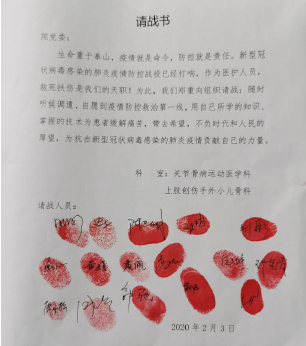 请战书
院党委：
生命重于泰山，疫情就是命令，防控就是责任。新型冠
状病毒感染的肺炎疫情防控战役已经打响，作为医护人员，
救死扶伤是我们的天职！为此，我们郑重向组织请战：随时
听候调遣，自愿到疫情防控救治第一线，用自己所学的知识、
掌握的技术为患者缓解痛苦，带去希望，不负时代和人民的
厚望，为抗击新型冠状病毒感染的肺炎疫情贡献自己的力量。
科 室：关节骨病运动医学科
上肢创伤手外小儿骨科
请战人员：
2020 年 2 月 3 日